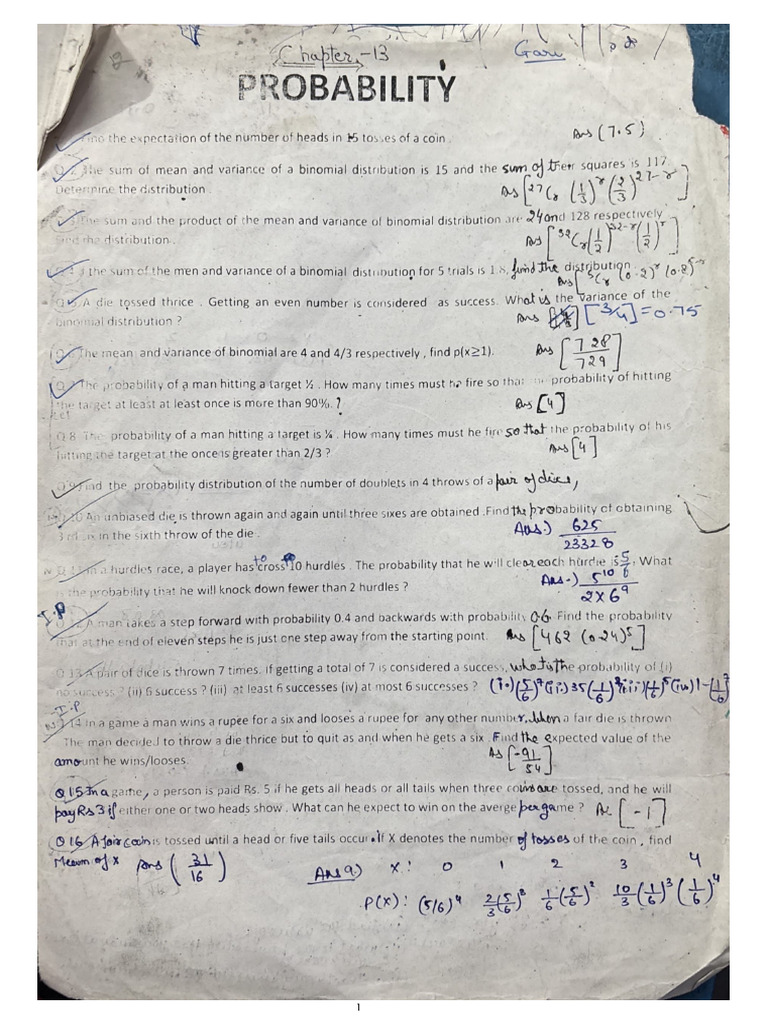 Chapter-13
PROBABILITY
the expectation of the number of heads in 15 tosses of a coin. Ans (7.5)
The sum of mean and variance of a binomial distribution is 15 and the sum of their squares is 117
Determine the distribution. Ans [27Cr (1/3)^r (2/3)^27-r]
The sum and the product of the mean and variance of binomial distribution are 24 and 128 respectively
find the distribution. Ans [32Cr (1/2)^32-r (1/2)^r]
the sum of the men and variance of a binomial distribution for 5 trials is 1.8, find the distribution
Ans [5Cr (0.2)^r (0.8)^5-r
A die tossed thrice. Getting an even number is considered as success. What is the variance of the
binomial distribution ? Ans [3/4] = 0.75
The mean and variance of binomial are 4 and 4/3 respectively, find p(x≥1). Ans [728/729]
The probability of a man hitting a target ½. How many times must he fire so that the probability of hitting
the target at least at least once is more than 90%.? Ans [4]
Q.8 The probability of a man hitting a target is ¼. How many times must he fire so that the probability of his
hitting the target at the once is greater than 2/3 ? Ans [4]
Q.9 Find the probability distribution of the number of doublets in 4 throws of a pair of dice,
10 An unbiased die is thrown again and again until three sixes are obtained .Find the probability of obtaining
3 in the sixth throw of the die. Ans.) 625/23328
in a hurdles race, a player has to cross 10 hurdles. The probability that he will clear each hurdle is 5/6. What
is the probability that he will knock down fewer than 2 hurdles ? Ans-) 5^10/2×6^9
I.P
Q.12 A man takes a step forward with probability 0.4 and backwards with probability 0.6. Find the probability
that at the end of eleven steps he is just one step away from the starting point. Ans [462 (0.24)^5]
Q.13 A pair of dice is thrown 7 times. If getting a total of 7 is considered a success, what is the probability of (i)
no success ? (ii) 6 success ? (iii) at least 6 successes (iv) at most 6 successes ? (i) (5/6)^7 (ii) 35(1/6)^7 (iii) (1/6)^5 (iv) 1-(1/6)^7
I.P
14 In a game a man wins a rupee for a six and looses a rupee for any other number, when a fair die is thrown
The man decided to throw a die thrice but to quit as and when he gets a six. Find the expected value of the
amount he wins/looses. As [-91/54]
Q 15 In a game, a person is paid Rs. 5 if he gets all heads or all tails when three coins are tossed, and he will
pay Rs 3 if either one or two heads show. What can he expect to win on the averge per game ? As [-1]
Q 16 A fair coin is tossed until a head or five tails occur. If X denotes the number of tosses of the coin, find
Mean of X Ans (31/16)
Ans 9.) X: 0 1 2 3 4
P(X): (5/6)^4 2/3(5/6)^3 1/6(5/6)^2 10/3(1/6)^3 (1/6)^4
1